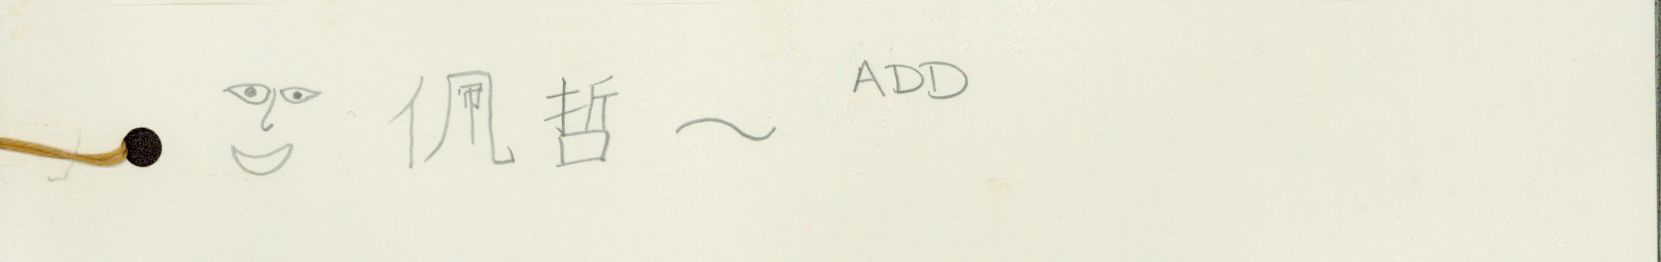 佩哲～ ADD